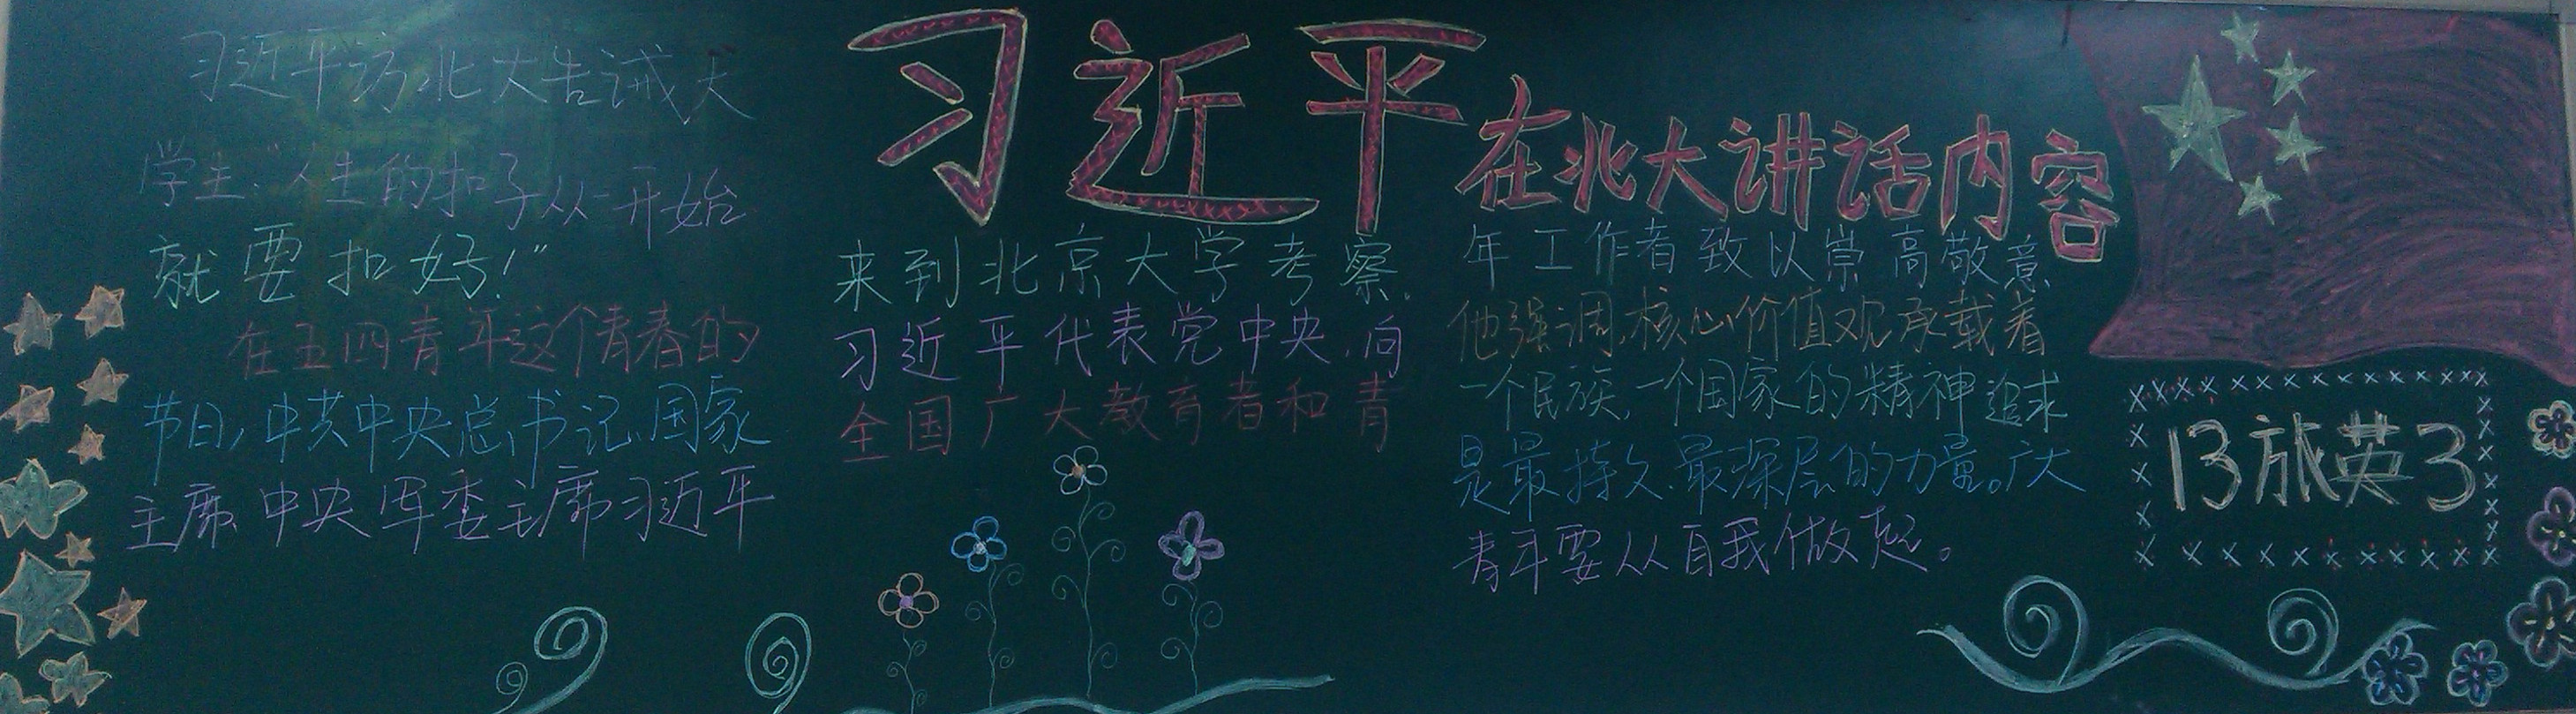 习近平在北大讲话内容
习近平访北大告诫大
学生:“人生的扣子从一开始
就要扣好!”
在五四青年这个青春的
节日,中共中央总书记、国家
主席、中央军委主席习近平
来到北京大学考察.
习近平代表党中央,向
全国广大教育者和青
年工作者致以崇高敬意
他强调,核心价值观承载着
一个民族,一个国家的精神追求
是最持久、最深层的力量。广大
青年要从自我做起。
13旅英3